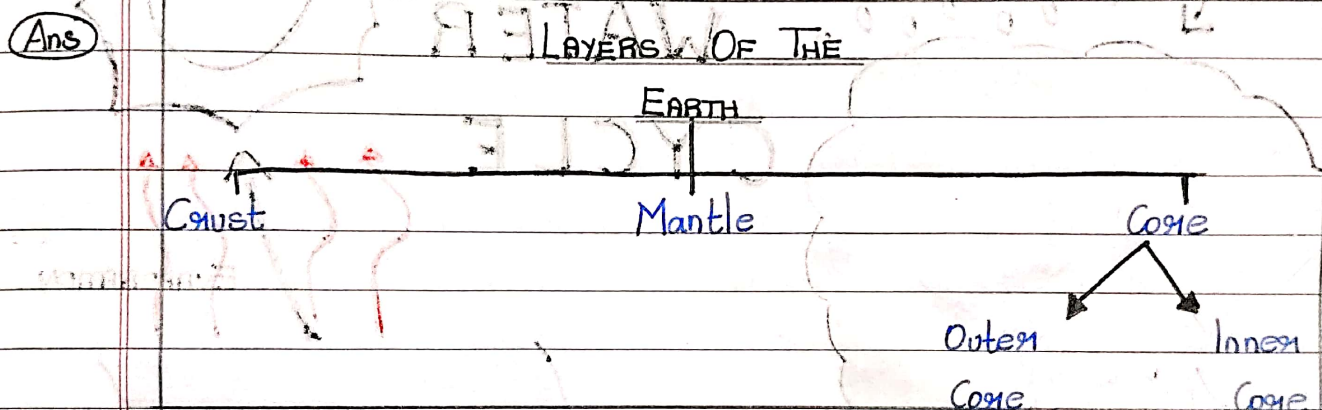 Ans
LAYERS OF THE
EARTH
Crust Mantle Core
Outer Inner
Core Core